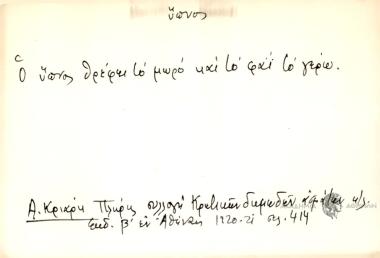 ὕπνος
Ὁ ὕπνος θρέφει τὸ μωρό καὶ τὸ φαΐ τὸ γέρω.
Α. Κριάρη Πλήρης συλλογή Κρητικῶν δημωδῶν ᾀσμάτων κ/ς.
Ἔκδ. β' ἐν Ἀθήναις 1920-21 σελ. 414